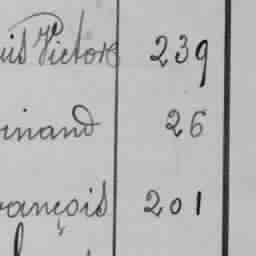 uis Victor 239
inand 26
rançois 201